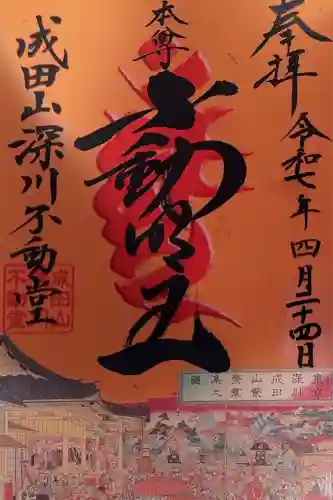 奉拝
令和七年四月二十四日
本尊
不動明王
成田山深川不動堂
成田山
不動堂
東京
深川
成田
山繁
栄繁
集之
圖